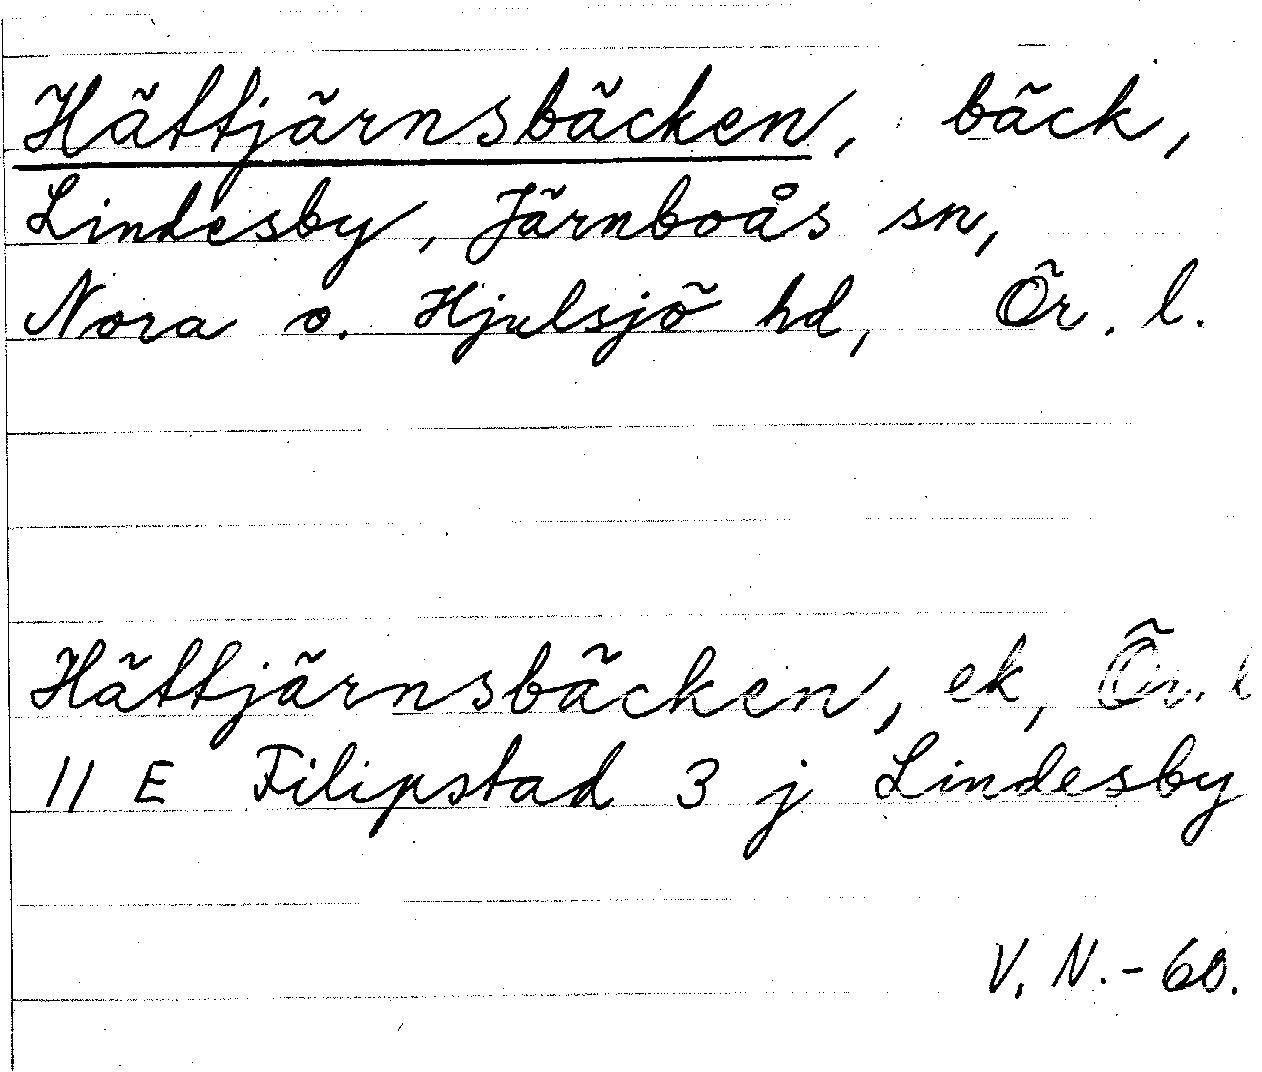 Hättjärnsbäcken, bäck,
Lindesby, Järnboås sn,
Nora o. Hjulsjö hd, Ör. l.
Hättjärnsbäcken, ek, Ör. l
11 E Filipstad 3 j Lindesby
V. N. - 60.